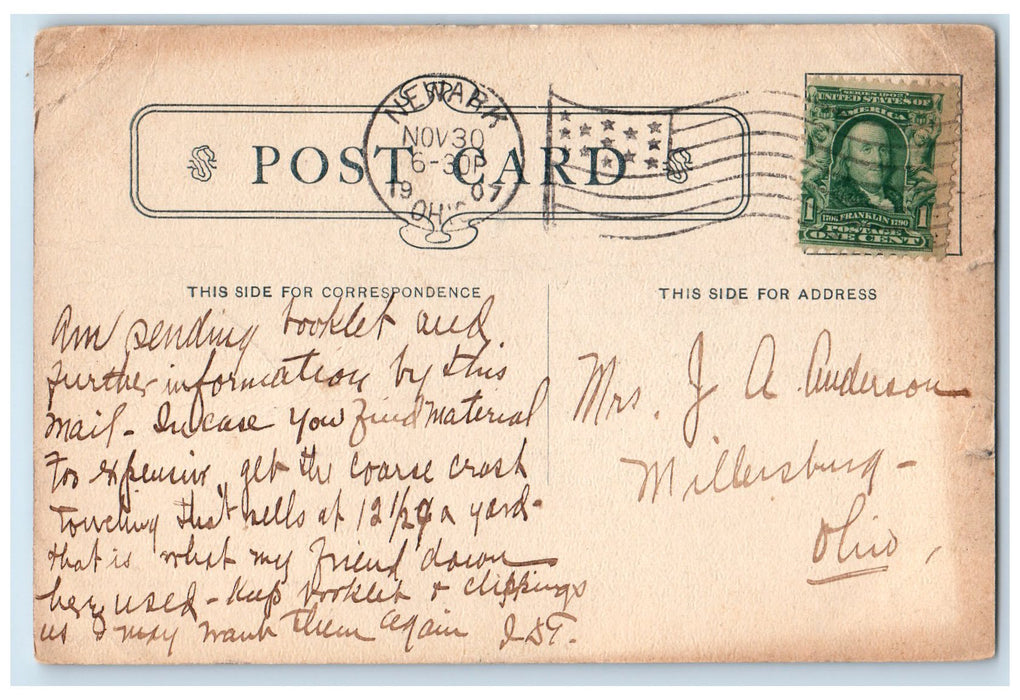 NEWARK
NOV 30
6-30P
1907
OHIO
POST CARD
SERIES 1902
UNITED STATES OF
AMERICA
1 1706 FRANKLIN 1790 1
POSTAGE
ONE CENT
THIS SIDE FOR CORRESPONDENCE
Am sending booklet and
further information by this
mail - In case you find material
too expensive, get the coarse crash
toweling that sells at 12 1/2¢ a yard -
that is what my friend down
here used - Keep booklet & clippings
as I may want them again
THIS SIDE FOR ADDRESS
Mrs. J A Anderson
Millersburg -
Ohio,